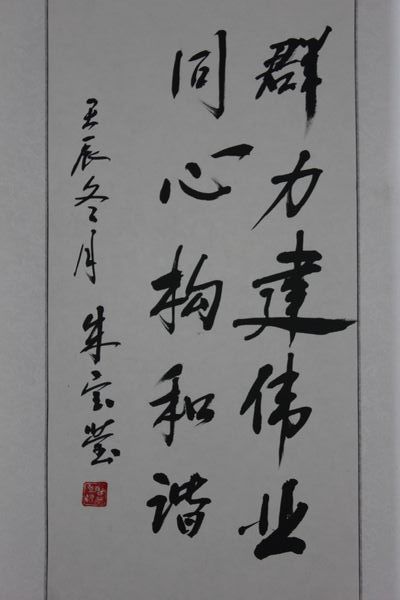 群力建伟业
同心构和谐
壬辰冬月 朱宝莹